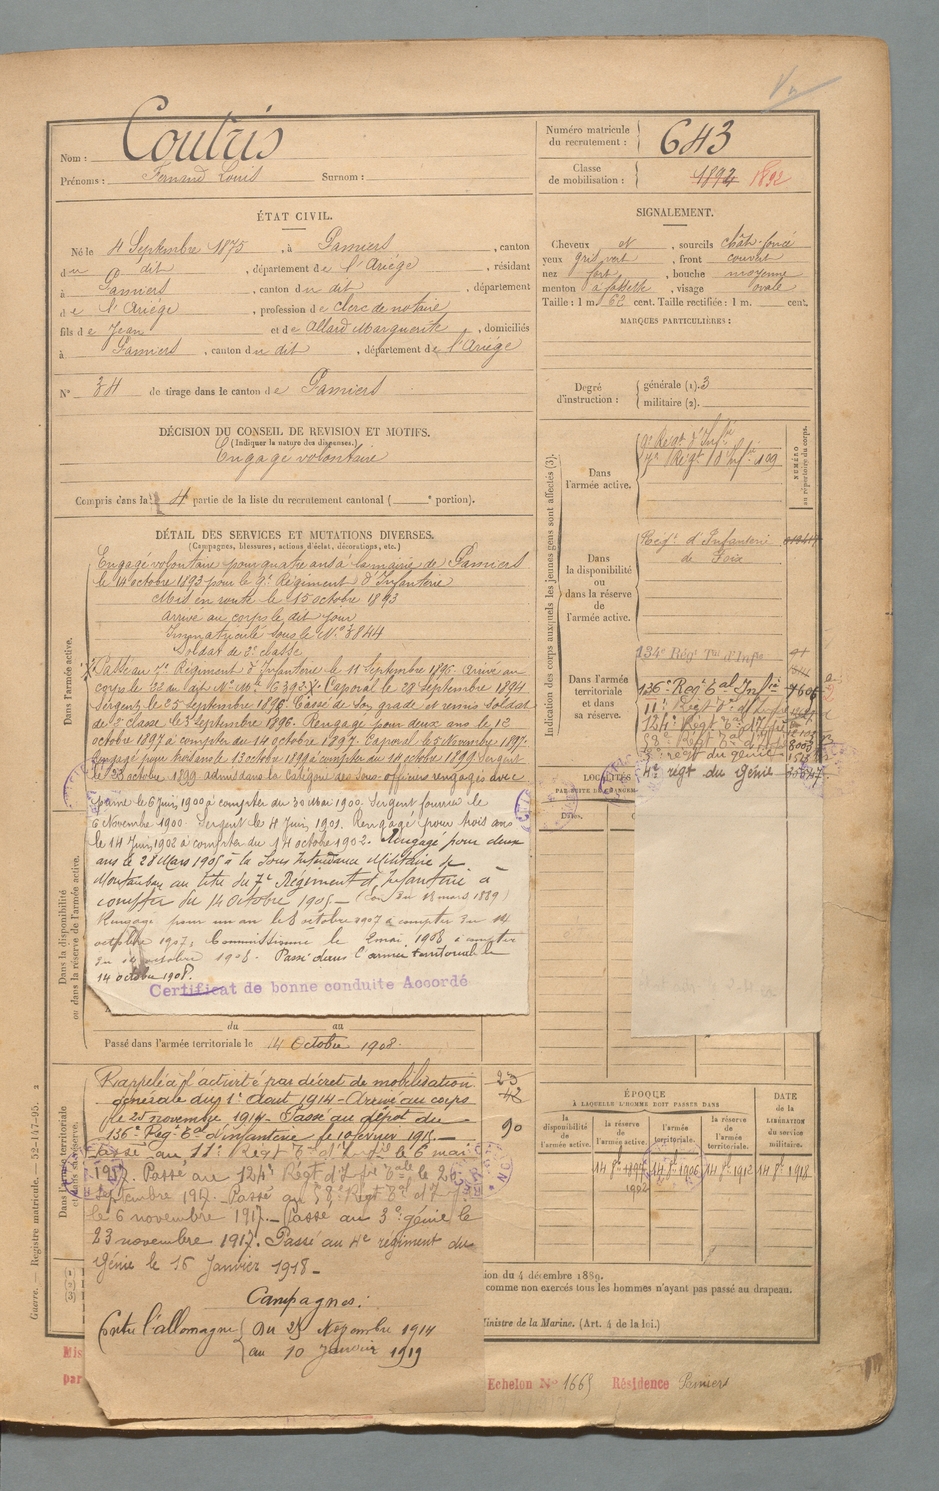 Nom : Coutris
Prénoms : Fernand Louis Surnom :
Numéro matricule du recrutement : 643
Classe de mobilisation : 1894 1892
ÉTAT CIVIL.
Né le 4 Septembre 1875, à Pamiers, canton
du dit, département de l'Ariège, résidant
à Pamiers, canton du dit, département
de l'Ariège, profession de clerc de notaire
fils de Jean et de Allard Marguerite, domiciliés
à Pamiers, canton du dit, département de l'Ariège
N° 34 de tirage dans le canton de Pamiers
SIGNALEMENT.
Cheveux et, sourcils chât. foncé
yeux gris vert, front couvert
nez fort, bouche moyenne
menton à fossette, visage ovale
Taille : 1 m. 62 cent. Taille rectifiée : 1 m. cent.
MARQUES PARTICULIÈRES :
Degré d'instruction : générale (1). 3
militaire (2).
DÉCISION DU CONSEIL DE REVISION ET MOTIFS.
(Indiquer la nature des dispenses.)
Engagé volontaire
Compris dans la 4 partie de la liste du recrutement cantonal ( e portion).
DÉTAIL DES SERVICES ET MUTATIONS DIVERSES.
(Campagnes, blessures, actions d'éclat, décorations, etc.)
Dans l'armée active.
Engagé volontaire pour quatre ans à la mairie de Pamiers
le 14 octobre 1893 pour le 9e Régiment d'Infanterie
Mis en route le 15 octobre 1893
Arrivé au corps le dit jour
Immatriculé sous le N° 3844
Soldat de 2e classe
Passé au 7e Régiment d'Infanterie le 11 Septembre 1896. Arrivé au
corps le 22 du Caporal le 28 Septembre 1894
Sergent le 25 septembre Cassé de son grade et remis Soldat
de 2e classe le 3 Septembre 1896. Rengagé pour deux ans le 12
octobre 1897 à compter du 14 octobre 1897. Caporal le 5 Novembre 1897.
Rengagé pour trois ans le 13 octobre 1899 à compter du 14 octobre 1899 Sergent
le 28 octobre 1899 admis dans la catégorie des sous-officiers rengagés avec
prime le 6 Juin 1900 à compter du 30 mai 1900. Sergent fourrier le
6 Novembre 1900. Sergent le 4 Juin 1901. Rengagé pour trois ans
le 14 Juin 1902 à compter du 14 octobre 1902. Rengagé pour deux
ans le 28 Mars 1905 à la Sous Intendance Militaire de
Montauban au titre du 7e Régiment d'Infanterie à
compter du 14 Octobre 1905 — (Loi du 18 mars 1889)
Rengagé pour un an le 8 octobre 1907 à compter du 14
octobre 1907. Commissionné le 2 mai 1908 à compter
du 14 octobre 1908. Passé dans l'armée territoriale le
14 octobre 1908.
Certificat de bonne conduite Accordé
Dans la disponibilité ou dans la réserve de l'armée active.
du au
Passé dans l'armée territoriale le 14 Octobre 1908.
Dans l'armée territoriale et dans sa réserve.
Rappelé à l'activité par décret de mobilisation
générale du 1er Août 1914 — Arrivé au corps
le 25 novembre 1914 — Passé au dépôt du
136e Reg. Eal d'infanterie le 10 février 1915. —
Passé au 11e Régt Eal d'Infie le 6 mai
1917. Passé au 124e Régt d'Infie Eale le 26
Septembre 1917. Passé au 58e Régt Eal d'If
le 6 novembre 1917. — Passé au 3e génie le
23 novembre 1917. Passé au 4e régiment du
Génie le 16 Janvier 1918 —
Campagnes :
Contre l'allemagne Du 25 Novembre 1914
au 10 Janvier 1919
23
48
90
Indication des corps auxquels les jeunes gens sont affectés (3).
NUMÉRO au répertoire du corps.
Dans l'armée active.
9e Regt d'Infie
7e Régt d'Infie 109
Dans la disponibilité ou dans la réserve de l'armée active.
Regt d'Infanterie
de Foix
Dans l'armée territoriale et dans sa réserve.
134e Régt Tal d'Infie
136e Reg Eal Infie 7606
11e Regt
124e Régt Eal d'Infie
58e Régt Eal d'Inf 8003
3e regt du génie
4e régt du Génie
LOCALITÉS
Dates.
ÉPOQUE
À LAQUELLE L'HOMME DOIT PASSER DANS
la disponibilité de l'armée active.
la réserve de l'armée active.
l'armée territoriale.
la réserve de l'armée territoriale.
DATE de la LIBÉRATION du service militaire.
14 8e 1897 14 8e 1906 14 8e 1912 14 8e 1918
1902
ion du 4 décembre 1889.
comme non exercés tous les hommes n'ayant pas passé au drapeau.
Ministre de la Marine. (Art. 4 de la loi.)
Mis
par
Echelon N° 1665 Résidence Pamiers
Guerre. — Registre matricule. — 52-147-95. 2